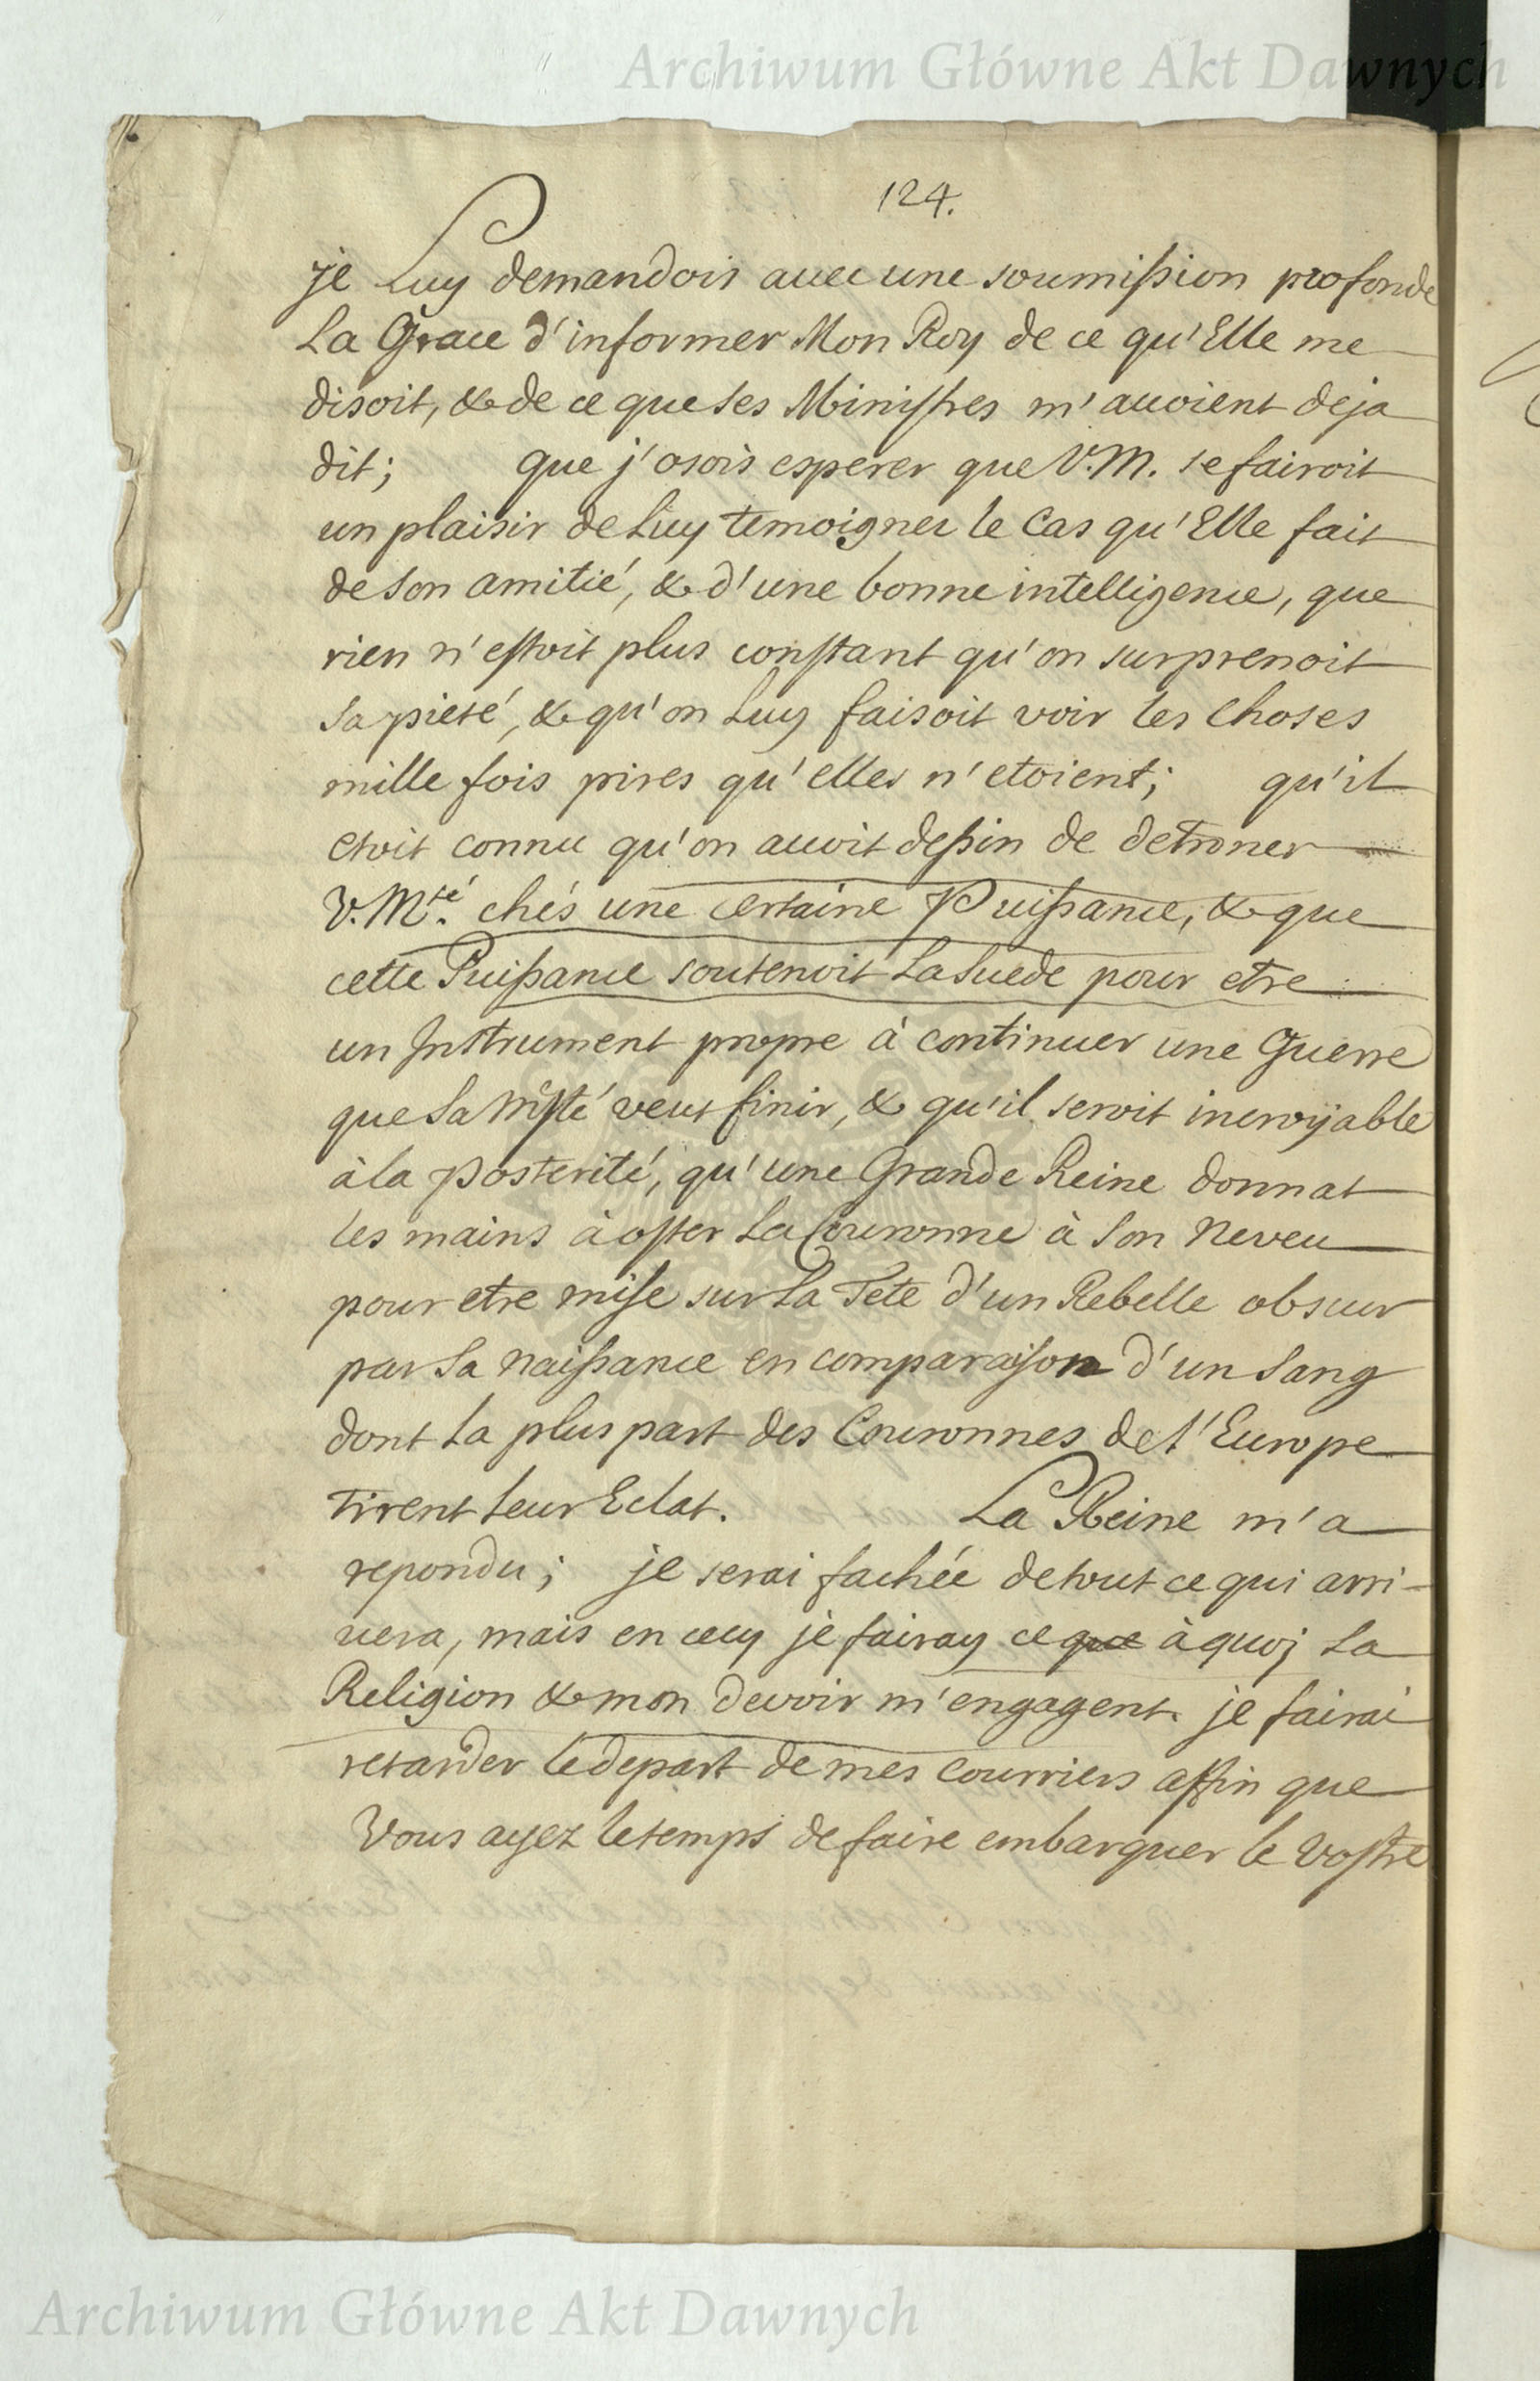 Archiwum Główne Akt Dawnych
124.
je Luy demandois avec une soumission profonde
La Grace d'informer Mon Roy de ce qu'Elle me
disoit, & de ce que ses Ministres m'avoient deja
dit; que j'osois esperer que V.M. se fairoit
un plaisir de Luy temoigner le Cas qu'Elle fait
de Son amitié, & d'une bonne intelligence, que
rien n'estoit plus constant qu'on surprenoit
Sa pieté, & qu'on Luy faisoit voir les Choses
mille fois pires qu'elles n'etoient; qu'il
etoit connu qu'on avoit dessin de detroner
V. Mté. chés une certaine Puissance, & que
cette Puissance soutenoit La Suede pour etre
un Instrument propre à continuer une Guerre
que Sa Mсsté veut finir, & qu'il seroit incroyable
à la Posterité, qu'une Grande Reine donnat
les mains à oster La Couronne à Son Neveu
pour etre mise sur La Tete d'un Rebelle obscur
par Sa Naissance en comparaison d'un Sang
dont La plus part des Couronnes de l'Europe
tirent leur Eclat. La Reine m'a
repondu; je serai fachée de tout ce qui arri-
vera, mais en cecy je fairay ce que à quoj La
Religion & mon devoir m'engagent. je fairai
retarder le depart de mes Courriers affin que
Vous ayez le temps de faire embarquer le Vostre
Archiwum Główne Akt Dawnych